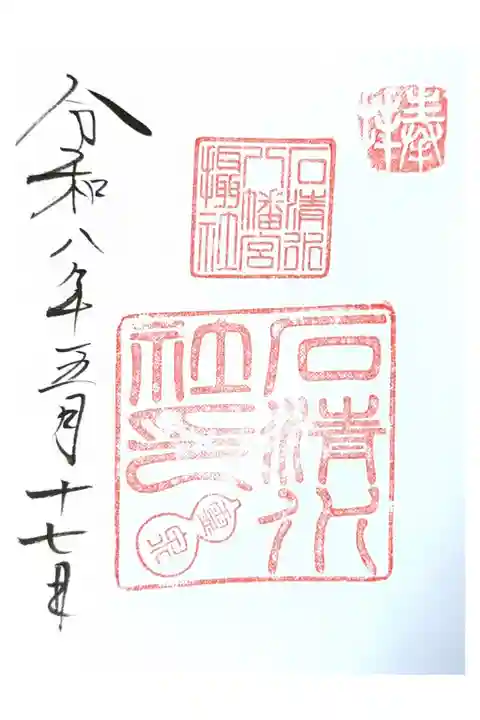 奉拝
石清水
八幡宮
摂社
石清水
社印
霊泉
令和八年五月十七日